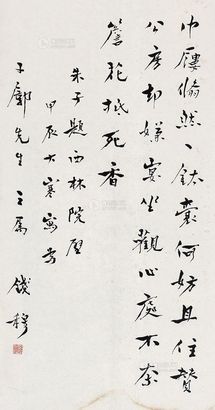 巾屨翛然一鉢囊何妨且住贊
公房却嫌宴坐觀心處不奈
簷花抵死香
朱子題西林院壁
甲辰大寒寫奉
子先生之屬 錢穆